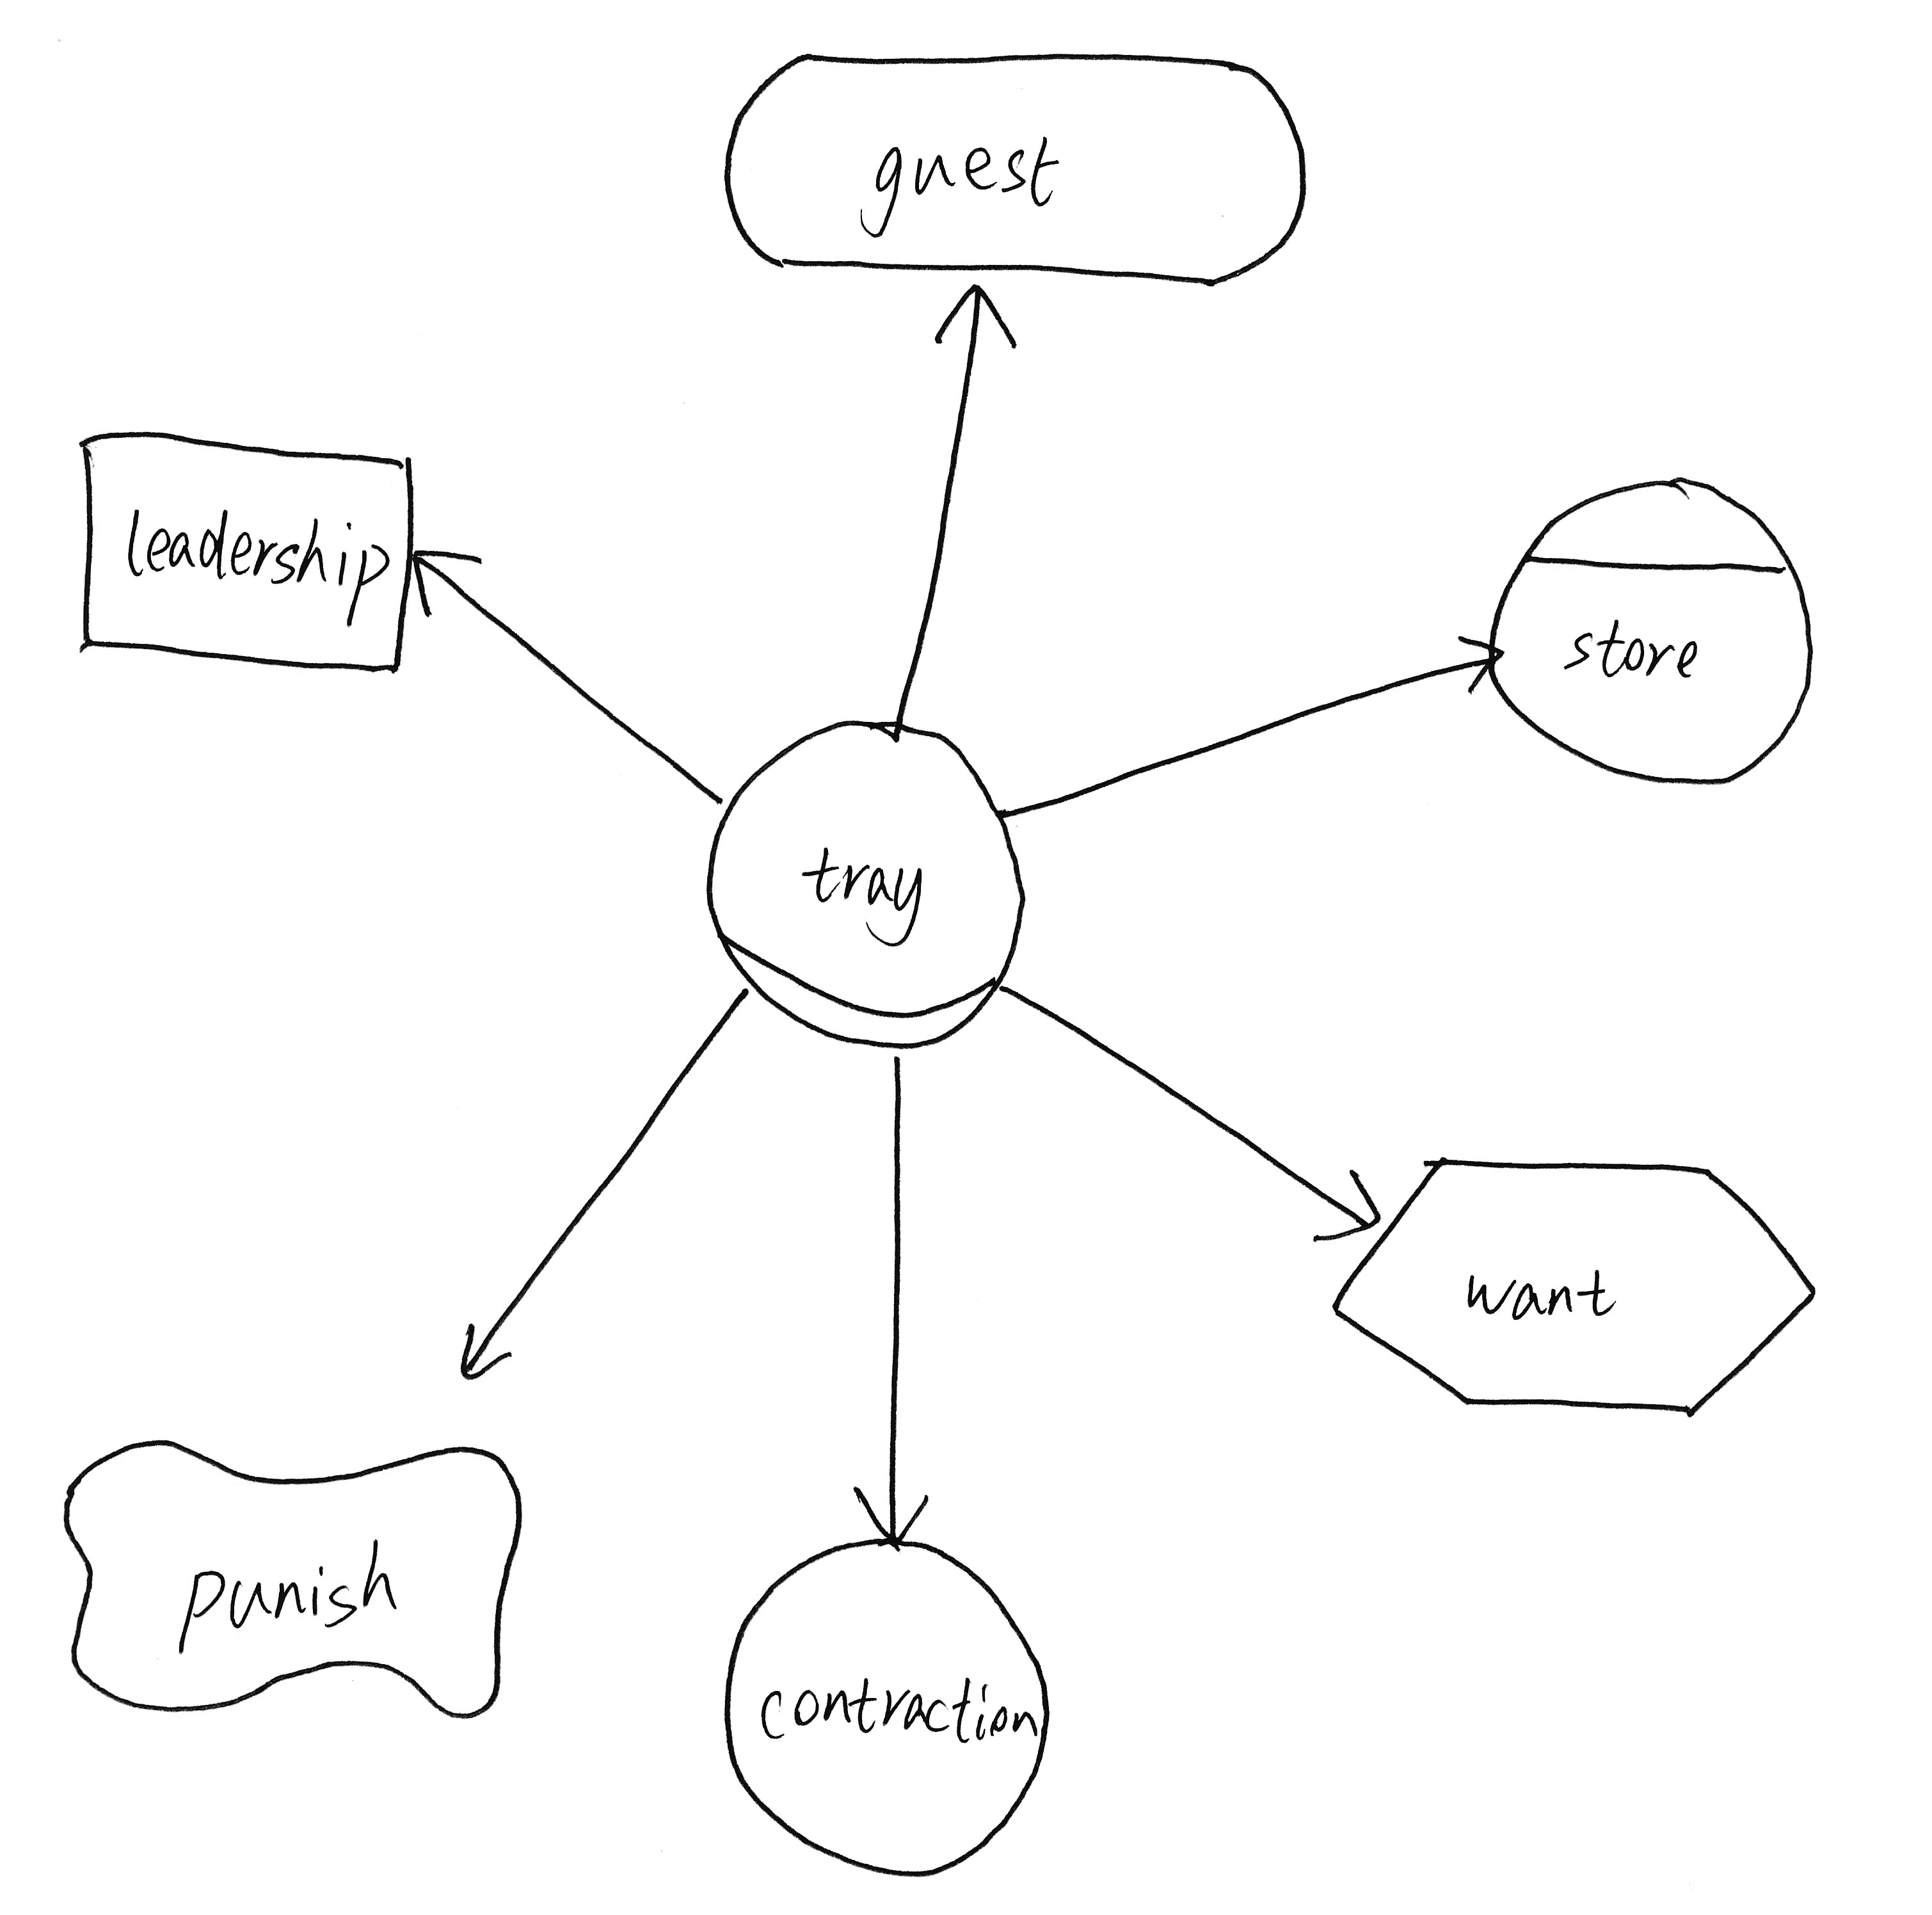 guest
leadership
store
tray
want
punish
contraction